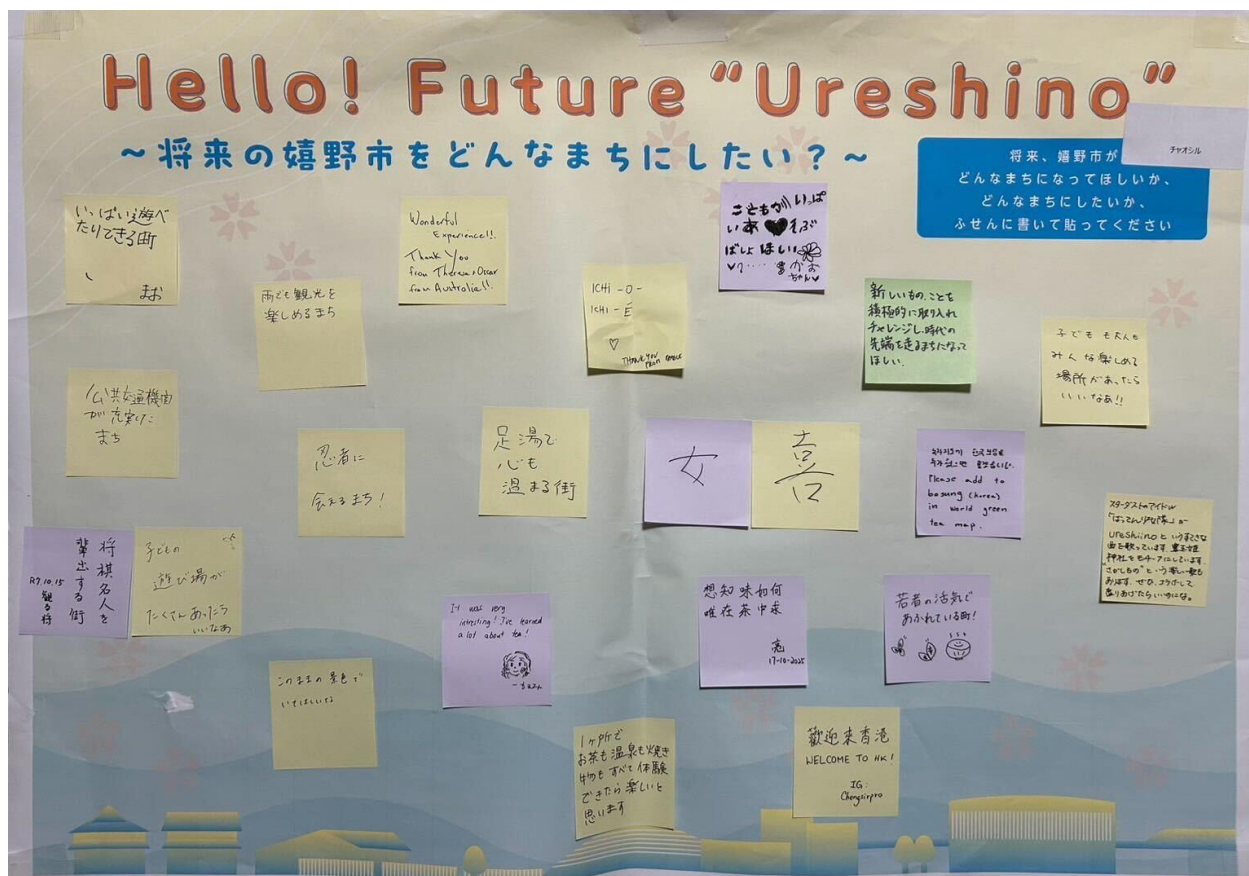 Hello! Future "Ureshino"
~将来の嬉野市をどんなまちにしたい?~
将来、嬉野市が
どんなまちになってほしいか、
どんなまちにしたいか、
ふせんに書いて貼ってください
チャオシル
いっぱい遊べ
たりできる町
まお
Wonderful
Experience!!
Thank You
from Theresa, Oscar
from Australia!!
こどもが いっぱ
いあ ♥ そぶ
ばしょ ほしい
ちゃん♥
雨でも観光を
楽しめるまち
ICHI -O-
ICHI - É
♡
THANK YOU
FROM
新しいもの、ことを
積極的に取り入れ
チャレンジし、時代の
先端を走るまちになって
ほしい。
子どもも大人も
みんな楽しめる
場所があったら
いいなあ!!
公共交通機関
が充実した
まち
忍者に
会えるまち!
足湯で
心も
温まる街
女
喜
Please add to
bosung (korea)
in world green
tea map.
スターダストのアイドル
「ばってん少女隊」が
Ureshiinoというすてきな
曲を歌っています。豊玉姫
神社をモチーフにしています。
"さがしもの"という
ぜひ、コラボして
盛りあげたらいいのにな。
将棋名人を
輩出する街
R7.10.15
観る将
子どもの
遊び場が
たくさんあったら
いいなあ
It was very
intresting! I've learned
a lot about tea!
想知味如何
唯在茶中求
亮
17-10-2025
若者の活気で
あふれている町!
このままの景色で
いてほしいな
1ヶ所で
お茶も温泉も焼き
物もすべて体験
できたら楽しいと
思います
歡迎來香港
WELCOME TO HK!
IG:
Chengsirpro